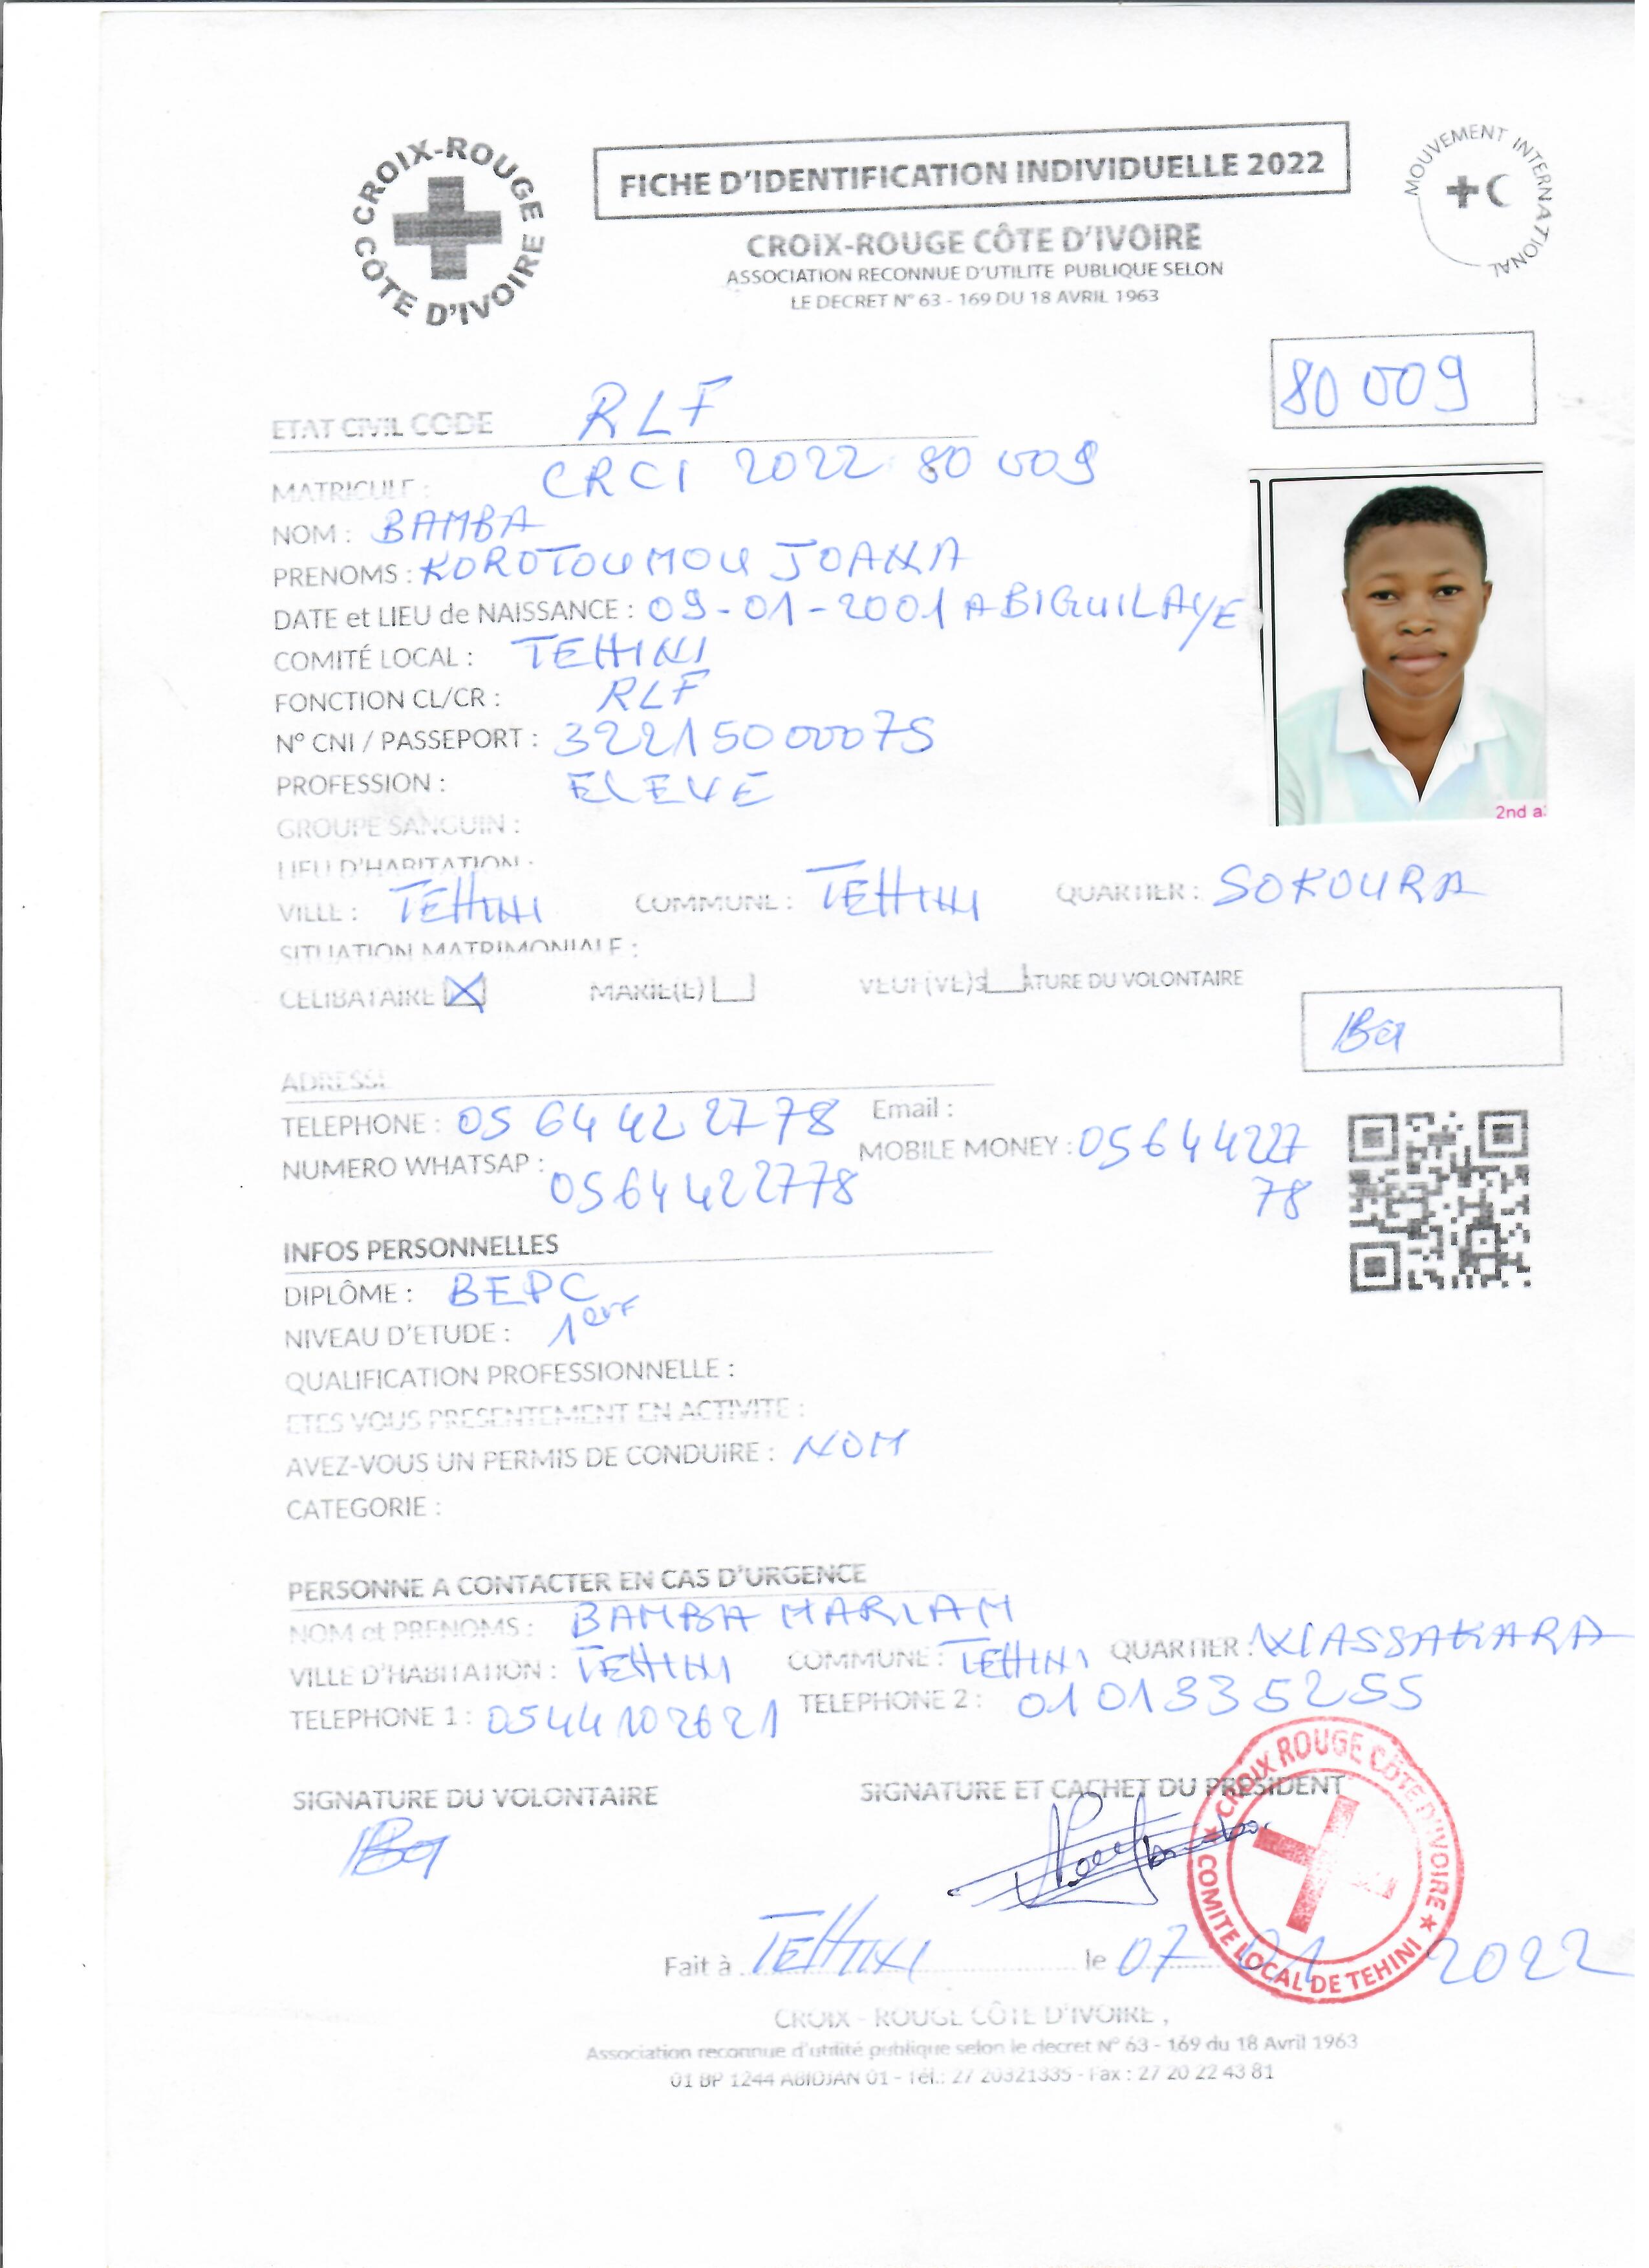 CROIX-ROUGE CÔTE D'IVOIRE
FICHE D'IDENTIFICATION INDIVIDUELLE 2022
MOUVEMENT INTERNATIONAL
CROIX-ROUGE CÔTE D'IVOIRE
ASSOCIATION RECONNUE D'UTILITE PUBLIQUE SELON
LE DECRET N° 63 - 169 DU 18 AVRIL 1963
80 009
ETAT CIVIL CODE RLF
MATRICULE : CRCI 2022 80 009
NOM : BAMBA
PRENOMS : KOROTOUMOU JOANA
DATE et LIEU de NAISSANCE : 09-01-2001 A BIGUILAYE
COMITÉ LOCAL : TEHINI
FONCTION CL/CR : RLF
N° CNI / PASSEPORT :
PROFESSION : ELEVE
2nd a
GROUPE SANGUIN :
LIEU D'HABITATION :
VILLE : TEHINI COMMUNE : TEHINI QUARTIER : SOKOURA
SITUATION MATRIMONIALE :
CELIBATAIRE MARIE(E) VEUF(VE) ATURE DU VOLONTAIRE
Ba
ADRESSE
TELEPHONE : 05 64 42 27 78 Email :
NUMERO WHATSAP : 0564422778 MOBILE MONEY : 05644227
78
INFOS PERSONNELLES
DIPLÔME : BEPC
NIVEAU D'ETUDE :
QUALIFICATION PROFESSIONNELLE :
ETES VOUS PRESENTEMENT EN ACTIVITE :
AVEZ-VOUS UN PERMIS DE CONDUIRE : NOM
CATEGORIE :
PERSONNE A CONTACTER EN CAS D'URGENCE
NOM et PRENOMS : BAMBA MARIAM
VILLE D'HABITATION : TEHINI COMMUNE : TEHINI QUARTIER : NIASSAKARA
TELEPHONE 1 : 0544102621 TELEPHONE 2 : 0101335255
SIGNATURE DU VOLONTAIRE SIGNATURE ET CACHET DU PRESIDENT
Ba
CROIX ROUGE CÔTE D'IVOIRE ★ COMITE LOCAL DE TEHINI ★
Fait à TEHINI le 07 01 2022
CROIX - ROUGE CÔTE D'IVOIRE ,
Association reconnue d'utilité publique selon le decret N° 63 - 169 du 18 Avril 1963
01 BP 1244 ABIDJAN 01 - Tél.: 27 20321335 - Fax : 27 20 22 43 81